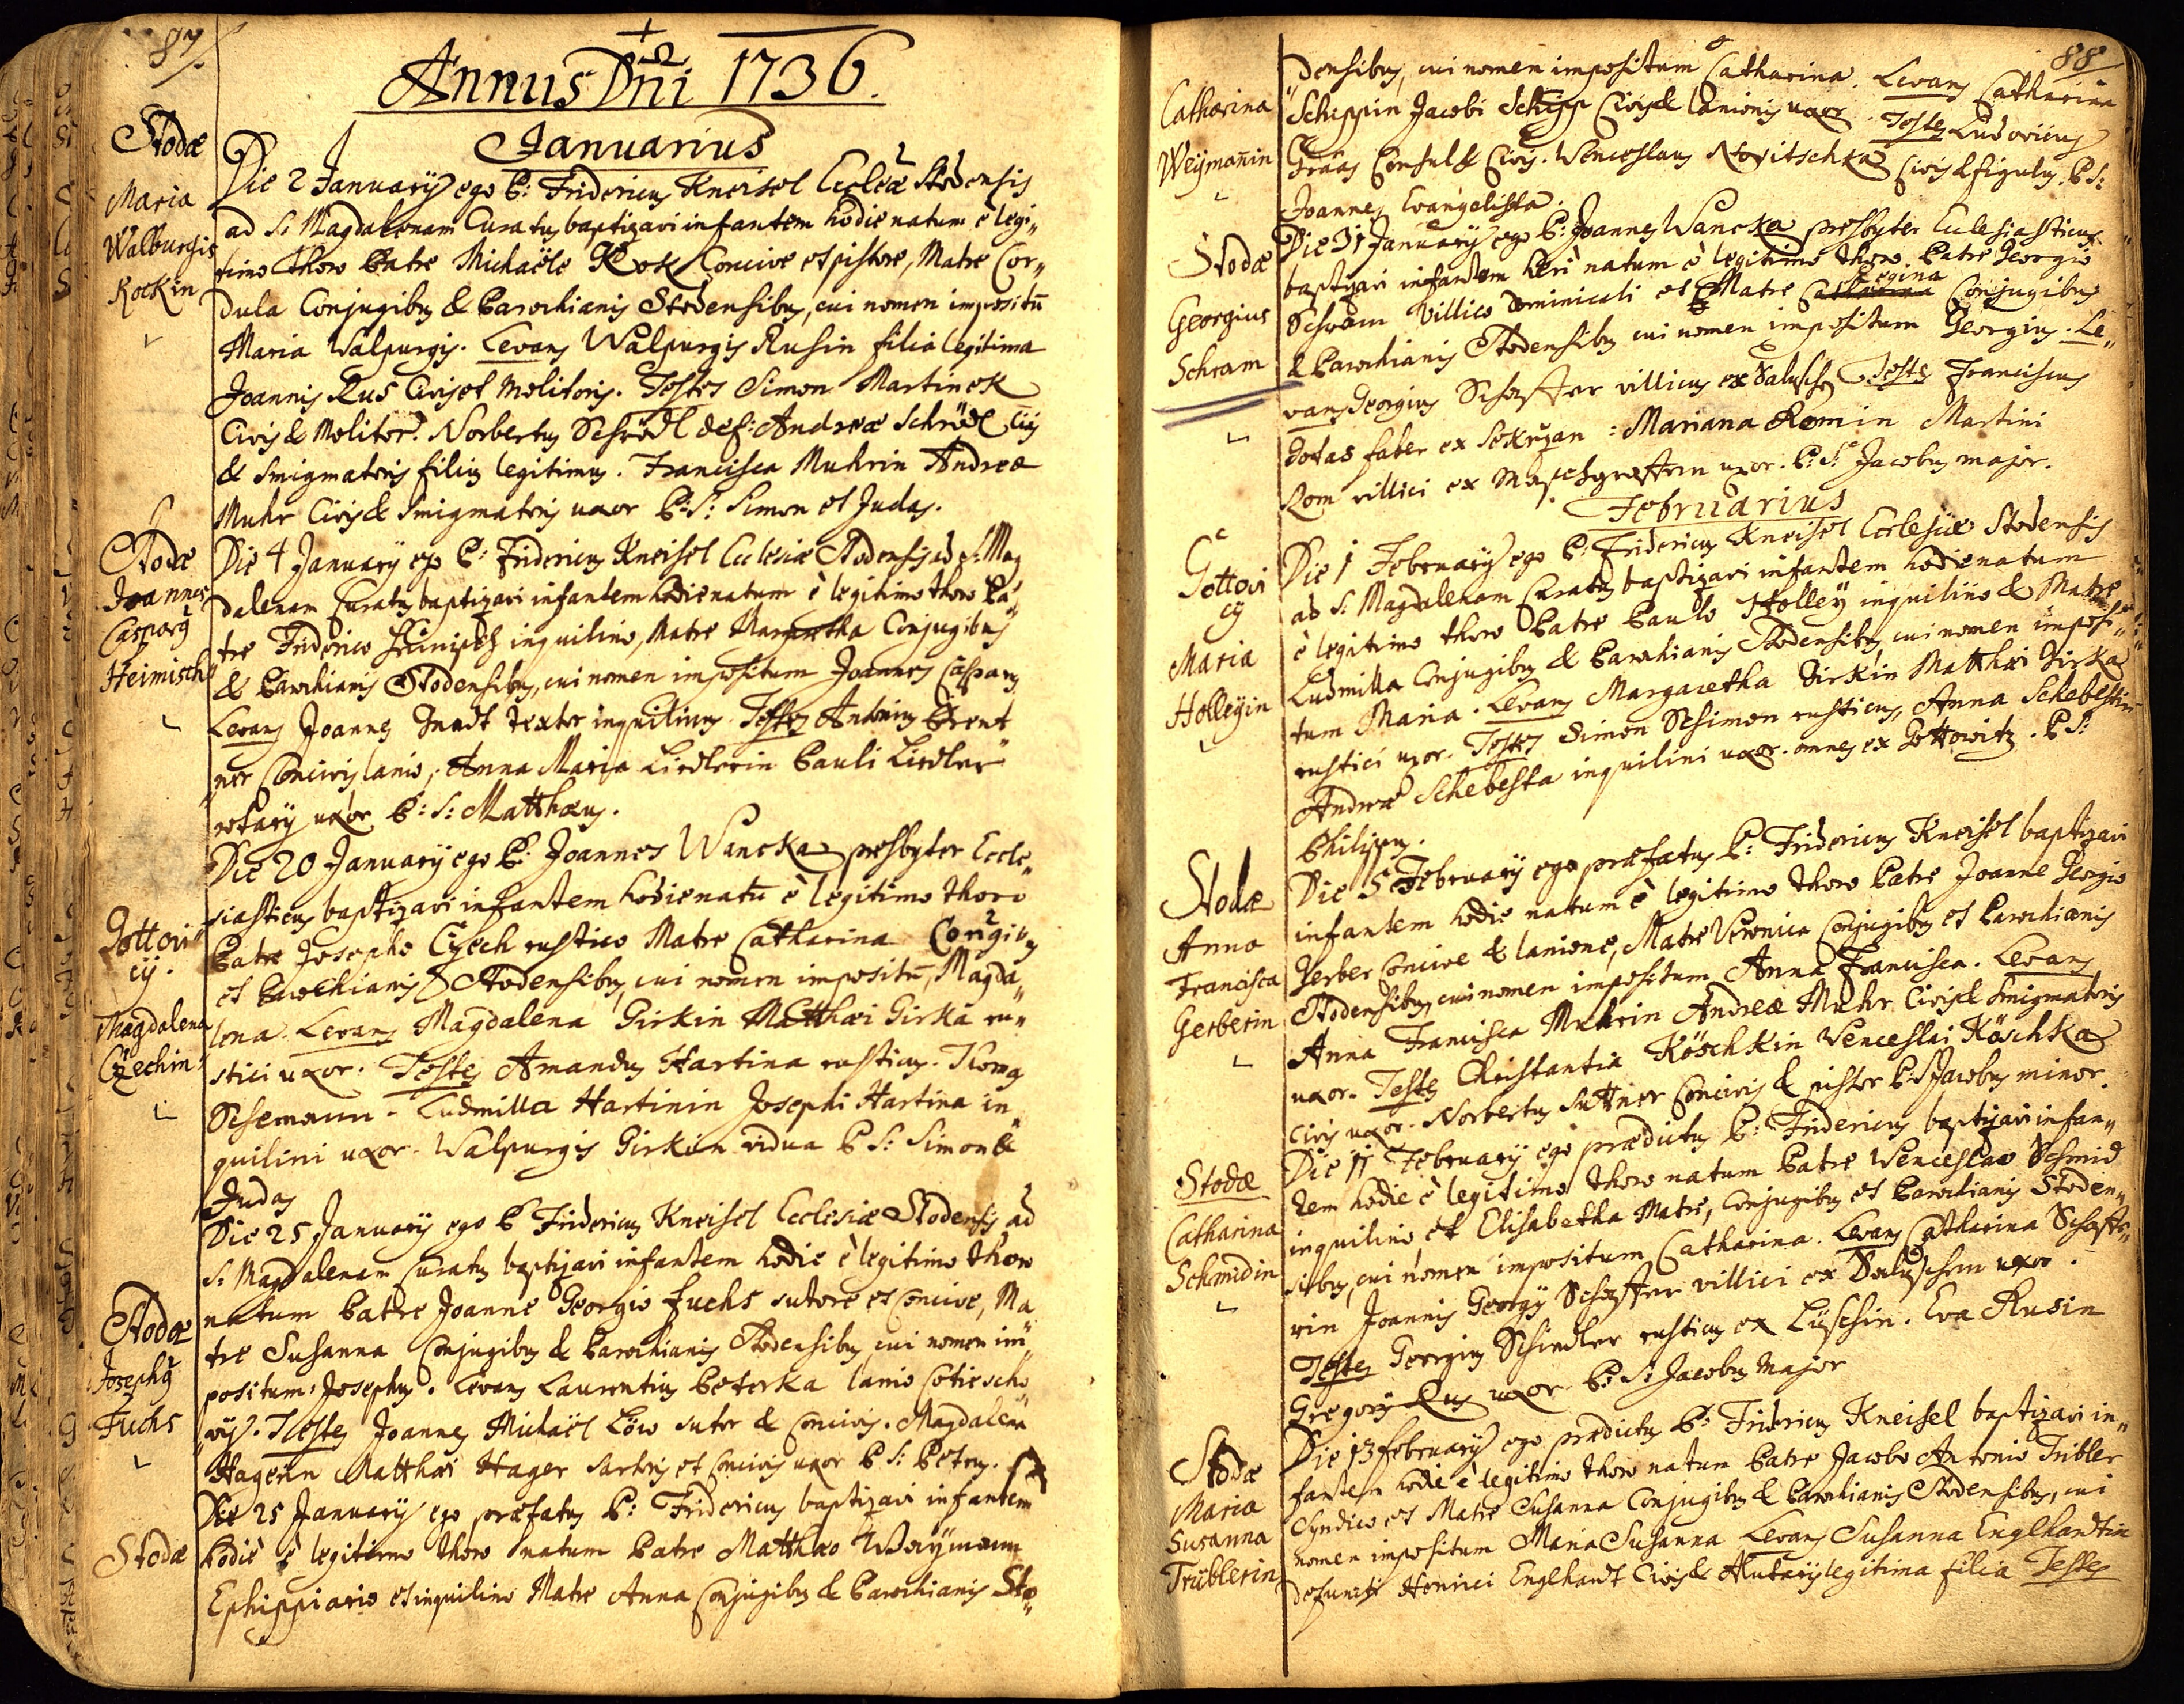 87
Annus Dni 1736.
Januarius
Stodæ
Maria
Walburgis
Rockin
Die 2 January ego P: Fridericus Kneisel Eccleæ Stodensis
ad S: Magdalenam Curatus baptizavi infantem hodie natum è legi„
timo thoro Patre Michaële Rok Concive et pistore, Matre Cor„
dula Conjugibus & Parochianis Stodensibus, cui nomen impositū
Maria Walpurgis. Levans Walpurgis Rusin filia legitima
Joannis Rus Civis et Molitoris. Testes Simon Martinek
Civis & Molitor. Norbertus Schrödl def: Andreæ Schrödl Civis
& Smigmatoris filius legitimus. Francisca Muhrin Andreæ
Muhr Civis & Smigmatoris uxor P: S: Simon et Judas.
Stodæ
Joannes
Caspary
Heimisch
Die 4 January ego P: Fridericus Kneisel Ecclesiæ Stodensis ad S: Mag
dalenam Curatus baptizavi infantem hodie natum è legitimo thoro Pa„
tre Friderico Heimisch inquilino, Matre Margaretha Conjugibus
& Parochianis Stodensibus, cui nomen impositum Joannes Casparus
Levans Joannes textor inquilinus Testes Antonius Brent
„ner Concivis lanio, Anna Maria Liedlerin Pauli Liedler
rotary uxor P: S: Matthæus.
Gottovi„
cij.
Magdalena
Czechin
Die 20 January ego P: Joannes Wancka presbyter Eccle„
siasticus baptizavi infantem hodie natū è legitimo thoro
Patre Josepho Czech rustico Matre Catharina Cōjugi„us
et Parochianis Stodensibus, cui nomen impositū, Magda„
lena. Levans Magdalena Girkin Matthæi Girka ru„
stici uxor. Testes Amandus Hartina rusticus. Thomas
Schemann. Ludmilla Hartinin Josephi Hartina in„
quilini uxor. Walpurgis Girkin vidua P S: Simon &
Judas
Stodæ
Josephy
Fuchs
Die 25 January ego P Fridericus Kneisel Ecclesiæ Stodensis ad
S: Magdalenam Curatus baptizavi infantem hodie è legitimo thoro
natum Patre Joanne Georgio Fuchs sutore et Concive, Ma
tre Susanna Conjugibus & Parochianis Stodensibus cui nomen im„
positum Josephus. Levans Laurentius Peterka lanio Cotiescho„
„vij. Testes Joannes Michaël Löw sutor & Concivis. Magdalena
Hagerin Matthæi Hager sartoris et Concivis uxor P S: Petrus.
Stodæ
Die 25 January ego præfatus P: Fridericus baptizavi infantem
hodie è legitimo thoro natum Patre Matthæo Weymann
Ephippiario et inquilino Matre Anna Conjugibus & Parochianis Sto„
88
Catharina
Weymañin
„densibus, cui nomen impositum Catharina. Levans Catharina
Schippin Jacobi Schipp Civis & lanionis uxor. Testes Ludovicus
Graas Consul & Civis. Wenceslaus Novitschka Civis & figulus. P S:
Joannes Evangelista.
Stodæ
Georgius
Schram
Die 31 January ego P: Joannes Wancka presbyter Eclesiasticus
baptizavi infantem heri natum è legitimo thoro. Patre Georgio
Schram Villico Dominicali et Matre Catharina Regina Conjugibus
& Parochianis Stodensibus cui nomen impositum Georgius. Le„
vans Georgius Schaffer villicus ex Testes Franciscus
faber ex : Mariana Romin Martini
Rom villici ex uxor. P: S: Jacobus major.
Februarius
Gottovi
cij
Maria
Holleyin
Die 1 February ego P: Fridericus Kneisel Ecclesiæ Stodensis
ad S: Magdalenam Curatus baptizavi infantem hodie natum
è legitimo thoro Patre Paulo Holley inquilino & Matre
Ludmilla Conjugibus & Parochianis Stodensibus, cui nomen imposi„
tum Maria. Levans Margaretha Girkin Matthæi Girka
rustici uxor. Testes Simon Schimon rusticus, Anna Schebestin
Andreæ Schebesta inquilini uxor. omnes ex Gottowitz. P S:
Philippus.
Stodæ
Anna
Francisca
Gerberin
Die 5 February ego præfatus P: Fridericus Kneisel baptizavi
infantem hodie natum è legitimo thoro Patre Joanne Georgio
Gerber Concive & lanione, Matre Veronica Conjugibus et Parochianis
Stodensibus, cui nomen impositum Anna Francisca. Levans
Anna Francisca Muhrin Andreæ Muhr Civis & Smigmatoris
uxor. Testes Constantia Köschkin Venceslai Köschka
Civis uxor. Norbertus Suttner Concivis & pistor P: S Jacobus minor.
Stodæ
Catharina
Schmidin
Die 11 February ego prædictus P: Fridericus baptizavi infan„
tem hodie è legitimo thoro natum Patre Wenceslao Schmid
inquilino et Elisabetha Matre, Conjugibus et Parochianis Stoden„
sibus, cui nomen impositum Catharina. Levans Catharina Schaffe„
rin Joannis Georgy Schaffer villici ex uxor.
Testes Georgius Schindler rusticus ex Lischin. Eva Rusin
Gregory Rus uxor P: S: Jacobus Major
Stodæ
Maria
Susanna
Trüblerin
Die 13 February ego prædictus P: Fridericus Kneisel baptizavi in„
fantem hodie è legitimo thoro natum Patre Jacobo Antonio Tribler
Syndico et Matre Susanna Conjugibus & Parochianis Stodensibus, cui
nomen impositum Maria Susanna Levans Susanna Englhardtin
defuncti Henrici Englhardt Civis & Alutary legitima filia Testes